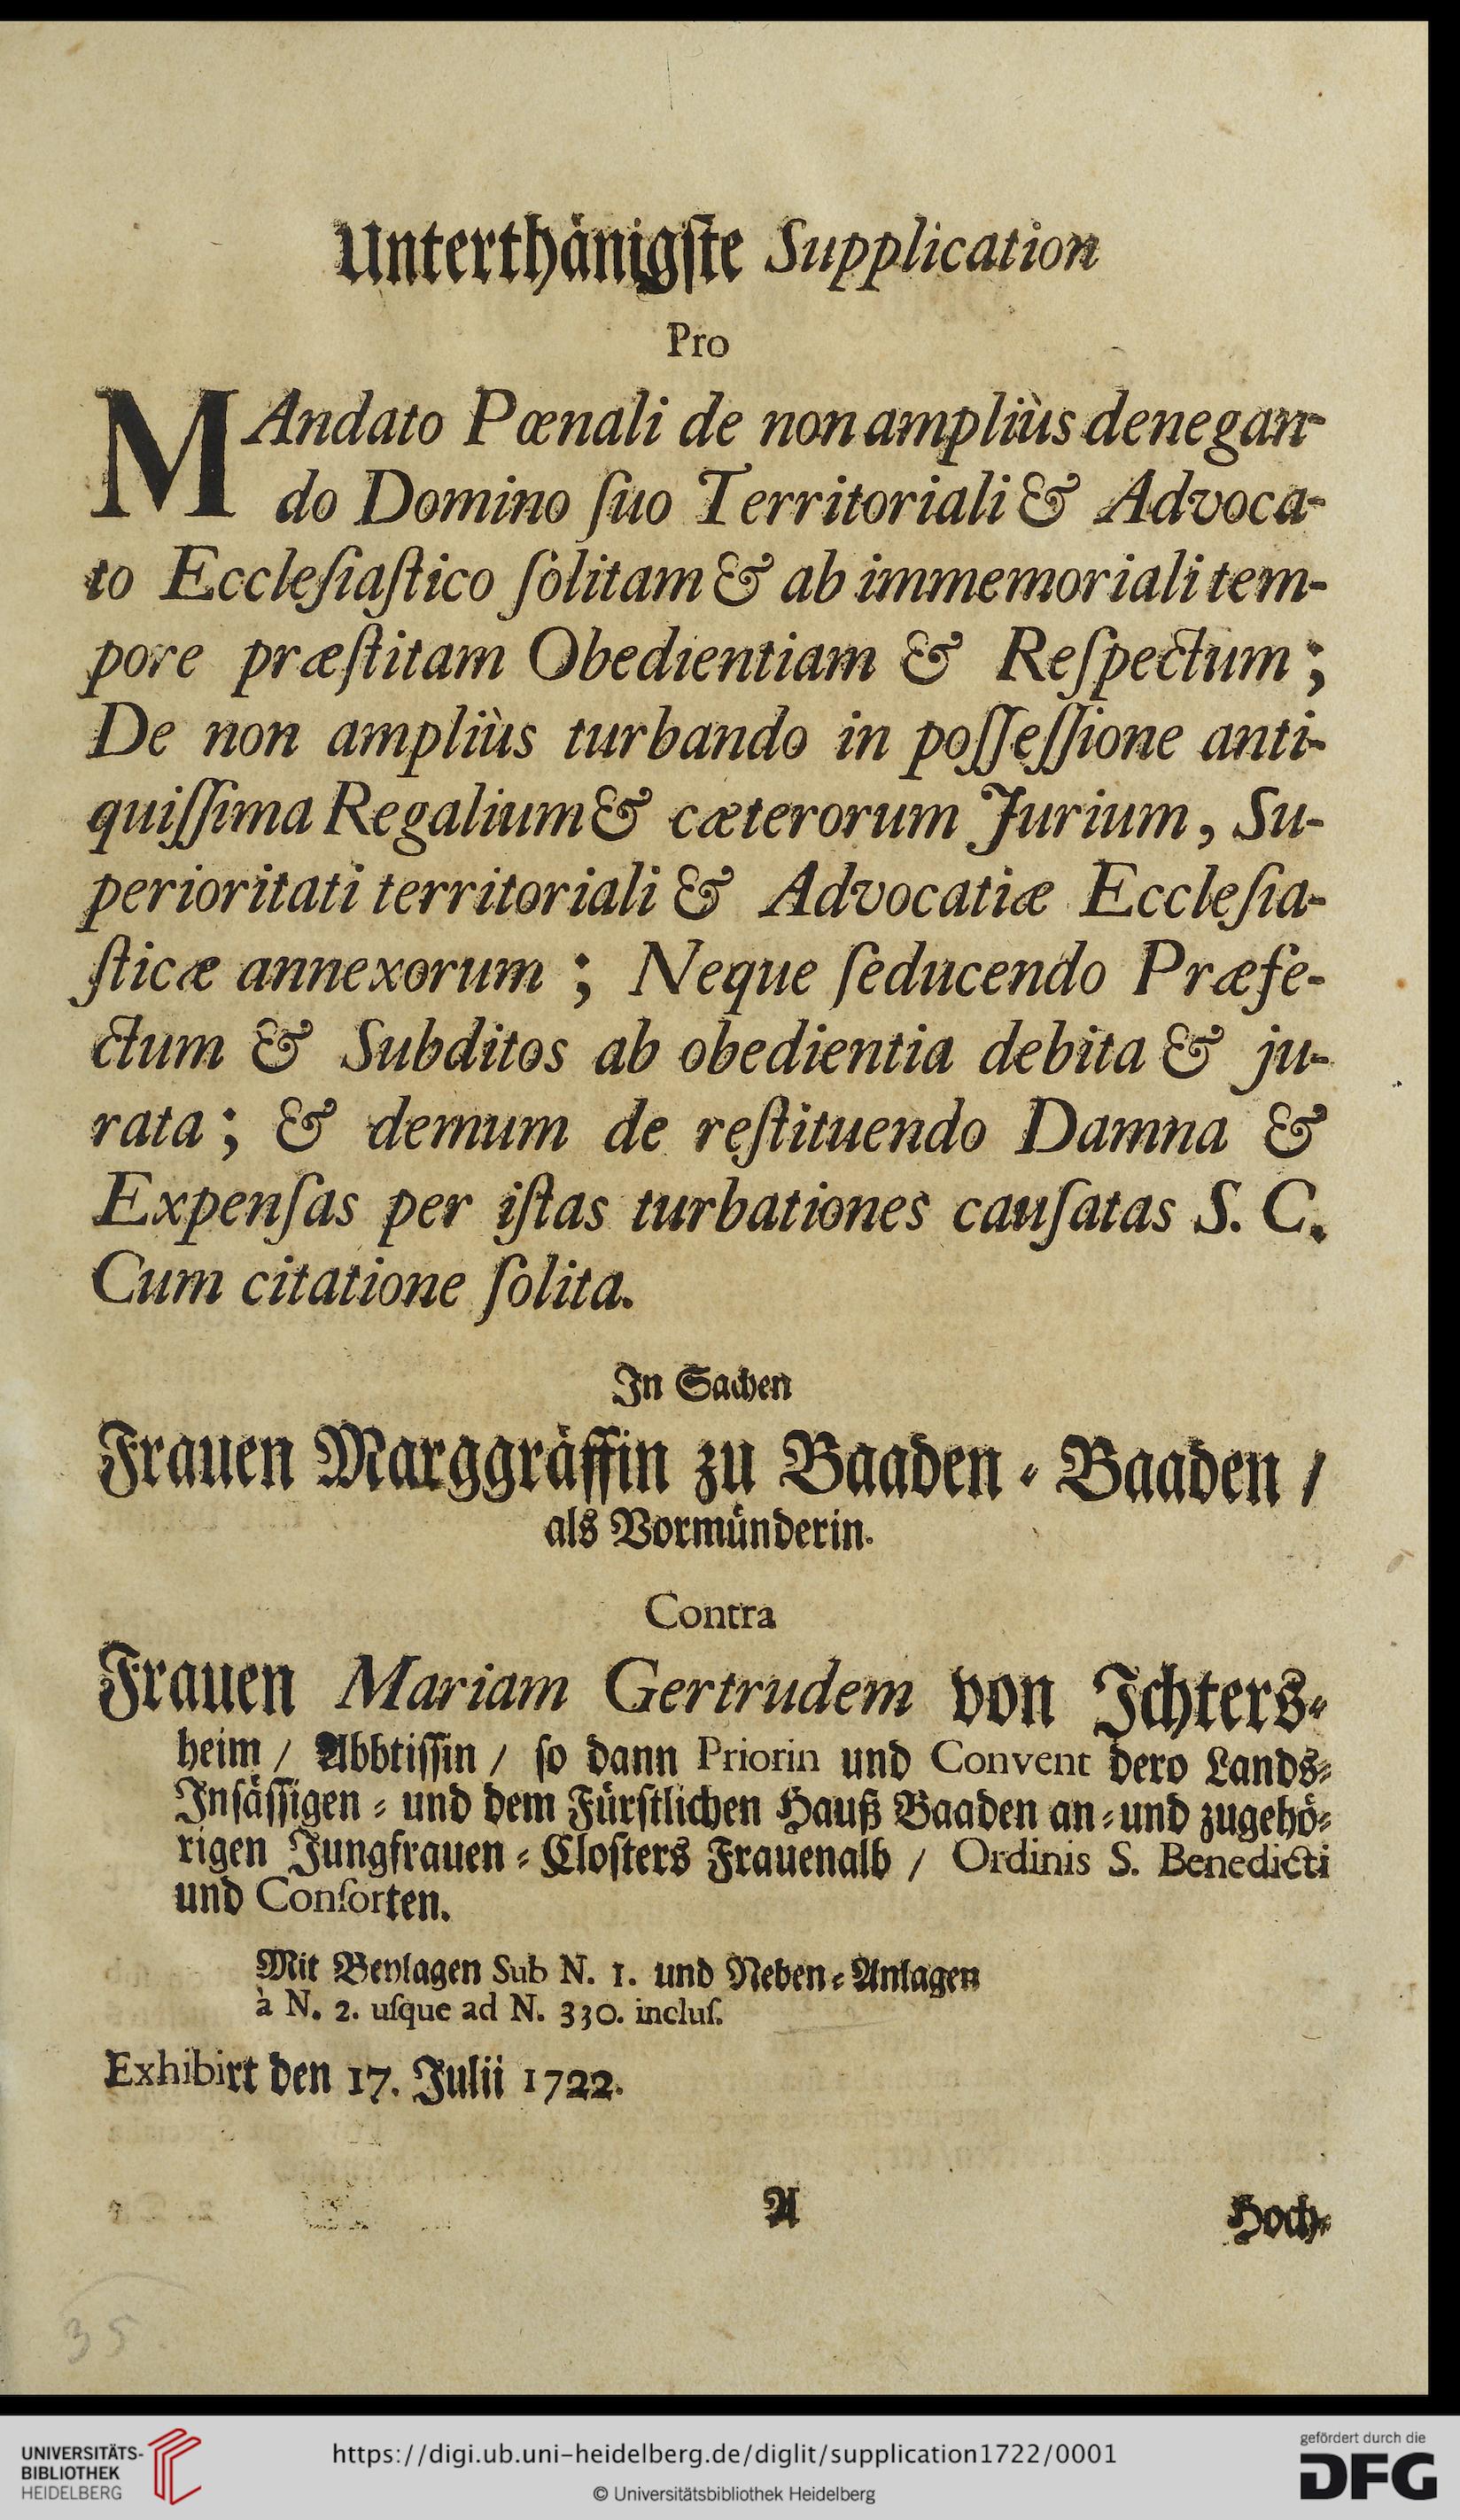 Unterthänigſte Supplication
Pro
MAndato Pœnali de non ampliùs denegan-
do Domino ſuo Territoriali & Advoca-
to Eccleſiaſtico ſolitam & ab immemoriali tem-
pore præſtitam Obedientiam & Reſpectum;
De non ampliùs turbando in poſſeſſione anti-
quiſſima Regalium & cæterorum Jurium, Su-
perioritati territoriali & Advocatiæ Eccleſia-
ſticæ annexorum; Neque ſeducendo Præfe-
ctum & Subditos ab obedientia debita & ju-
rata; & demum de reſtituendo Damna &
Expenſas per iſtas turbationes cauſatas S. C.
Cum citatione ſolita.
In Sachen
Frauen Marggräffin zu Baaden-Baaden /
als Vormünderin.
Contra
Frauen Mariam Gertrudem von Ichters-
heim / Abbtiſſin / ſo dann Priorin und Convent dero Lands-
Inſäſſigen- und dem Fürſtlichen Hauß Baaden an- und zugehö-
rigen Jungfrauen-Cloſters Frauenalb / Ordinis S. Benedicti
und Conſorten.
Mit Beylagen Sub N. 1. und Neben-Anlagen
à N. 2. uſque ad N. 330. incluſ.
Exhibirt den 17. Julii 1722.
A
Hoch-
35
UNIVERSITÄTS-
BIBLIOTHEK
HEIDELBERG
https://digi.ub.uni-heidelberg.de/diglit/supplication1722/0001
© Universitätsbibliothek Heidelberg
gefördert durch die
DFG